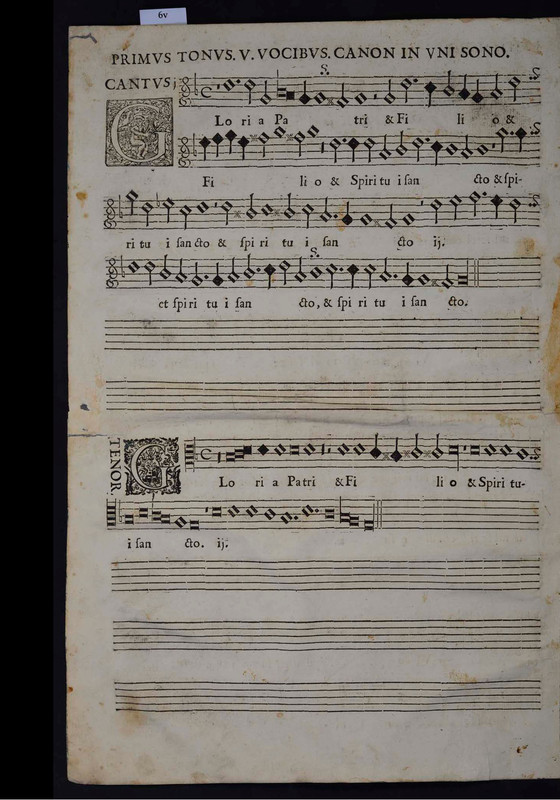 6v
PRIMVS TONVS. V. VOCIBVS. CANON IN VNI SONO.
CANTVS;
S.
G Lo ri a Pa tri & Fi li o &
Fi li o & Spiri tu i san cto & spi-
ri tu i san cto & spi ri tu i san cto ij.
S.
et spi ri tu i san cto, & spi ri tu i san cto.
TENOR.
G Lo ri a Patri & Fi li o & Spiri tu-
i san cto. ij.